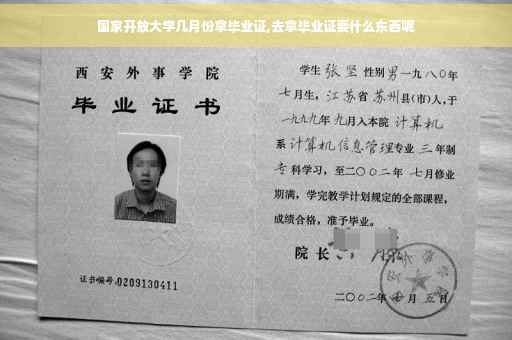 国家开放大学几月份拿毕业证,去拿毕业证要什么东西呢
西安外事学院
毕业证书
证书编号:0209130411
学生 张坚 性别 男 一九八〇年
七月生，江苏省 苏州 县(市)人，于
一九九九年 九月入本院 计算机
系 计算机信息管理 专业 三 年制
专 科学习，至二〇〇二年 七月修业
期满，学完教学计划规定的全部课程，
成绩合格，准予毕业。
院长
二〇〇二年 月 五日